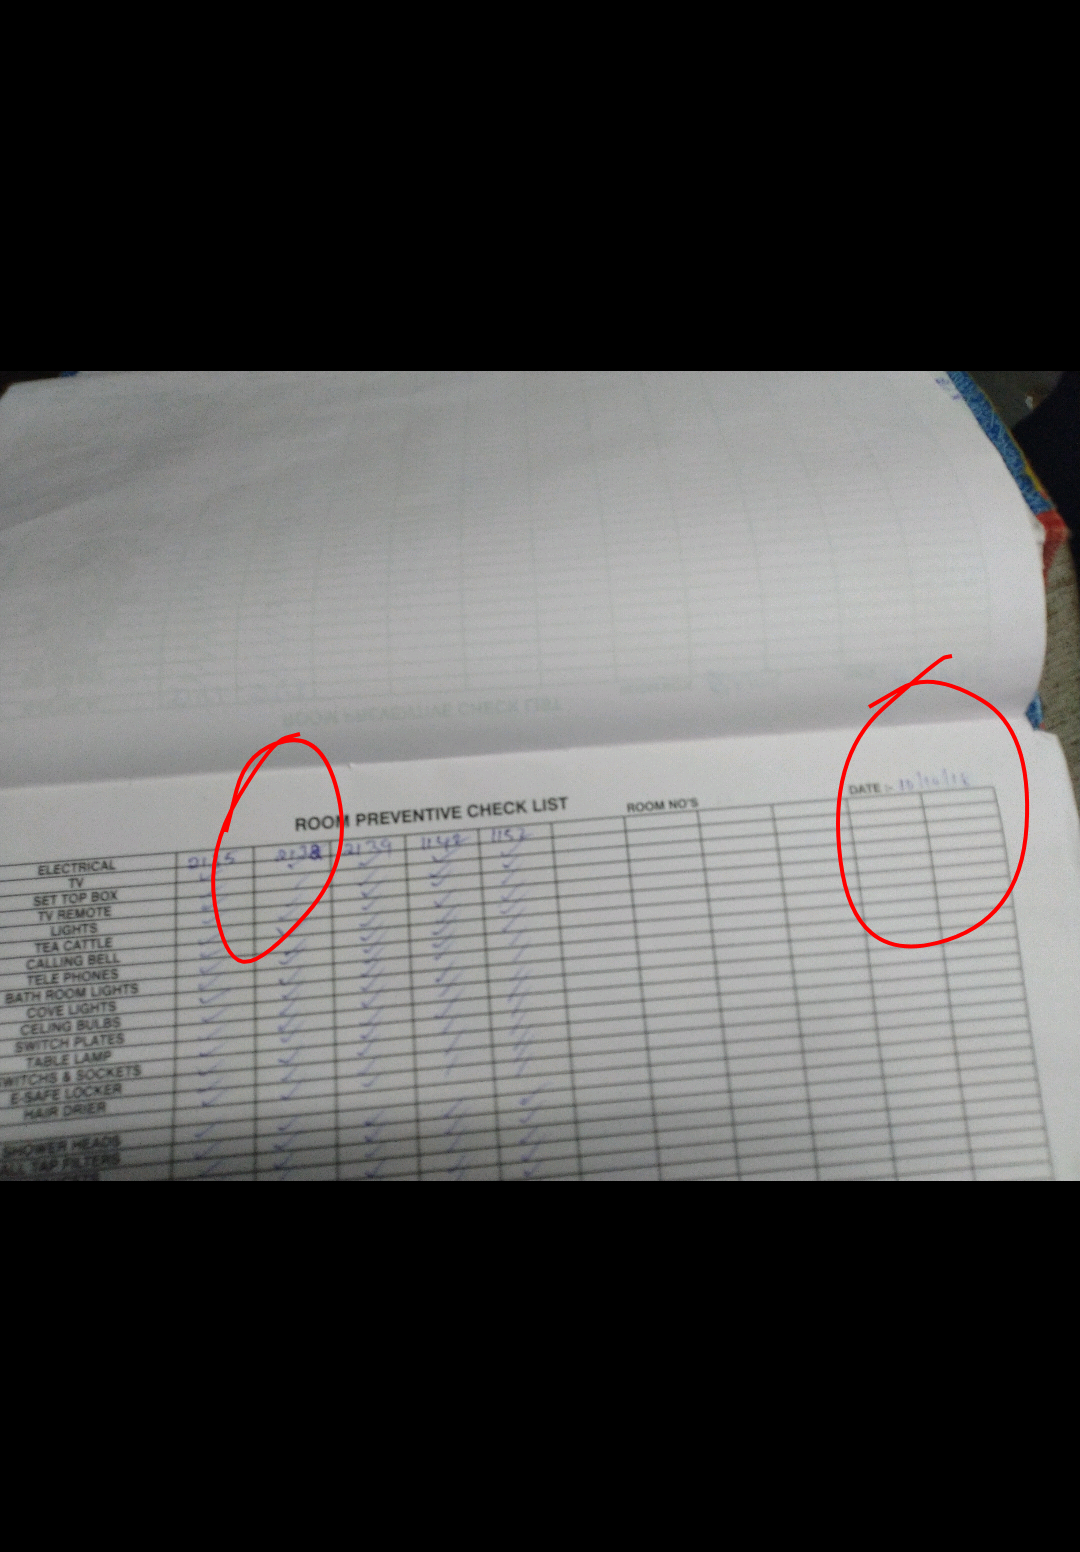 ROOM PREVENTIVE CHECK LIST
ROOM NO'S
DATE :-
ELECTRICAL 2138 2139 1148 1152
TV
SET TOP BOX
TV REMOTE
LIGHTS
TEA CATTLE
CALLING BELL
TELE PHONES
BATH ROOM LIGHTS
COVE LIGHTS
CELING BULBS
SWITCH PLATES
TABLE LAMP
WITCHS & SOCKETS
E-SAFE LOCKER
HAIR DRIER
SHOWER HEADS
TAP FILTERS